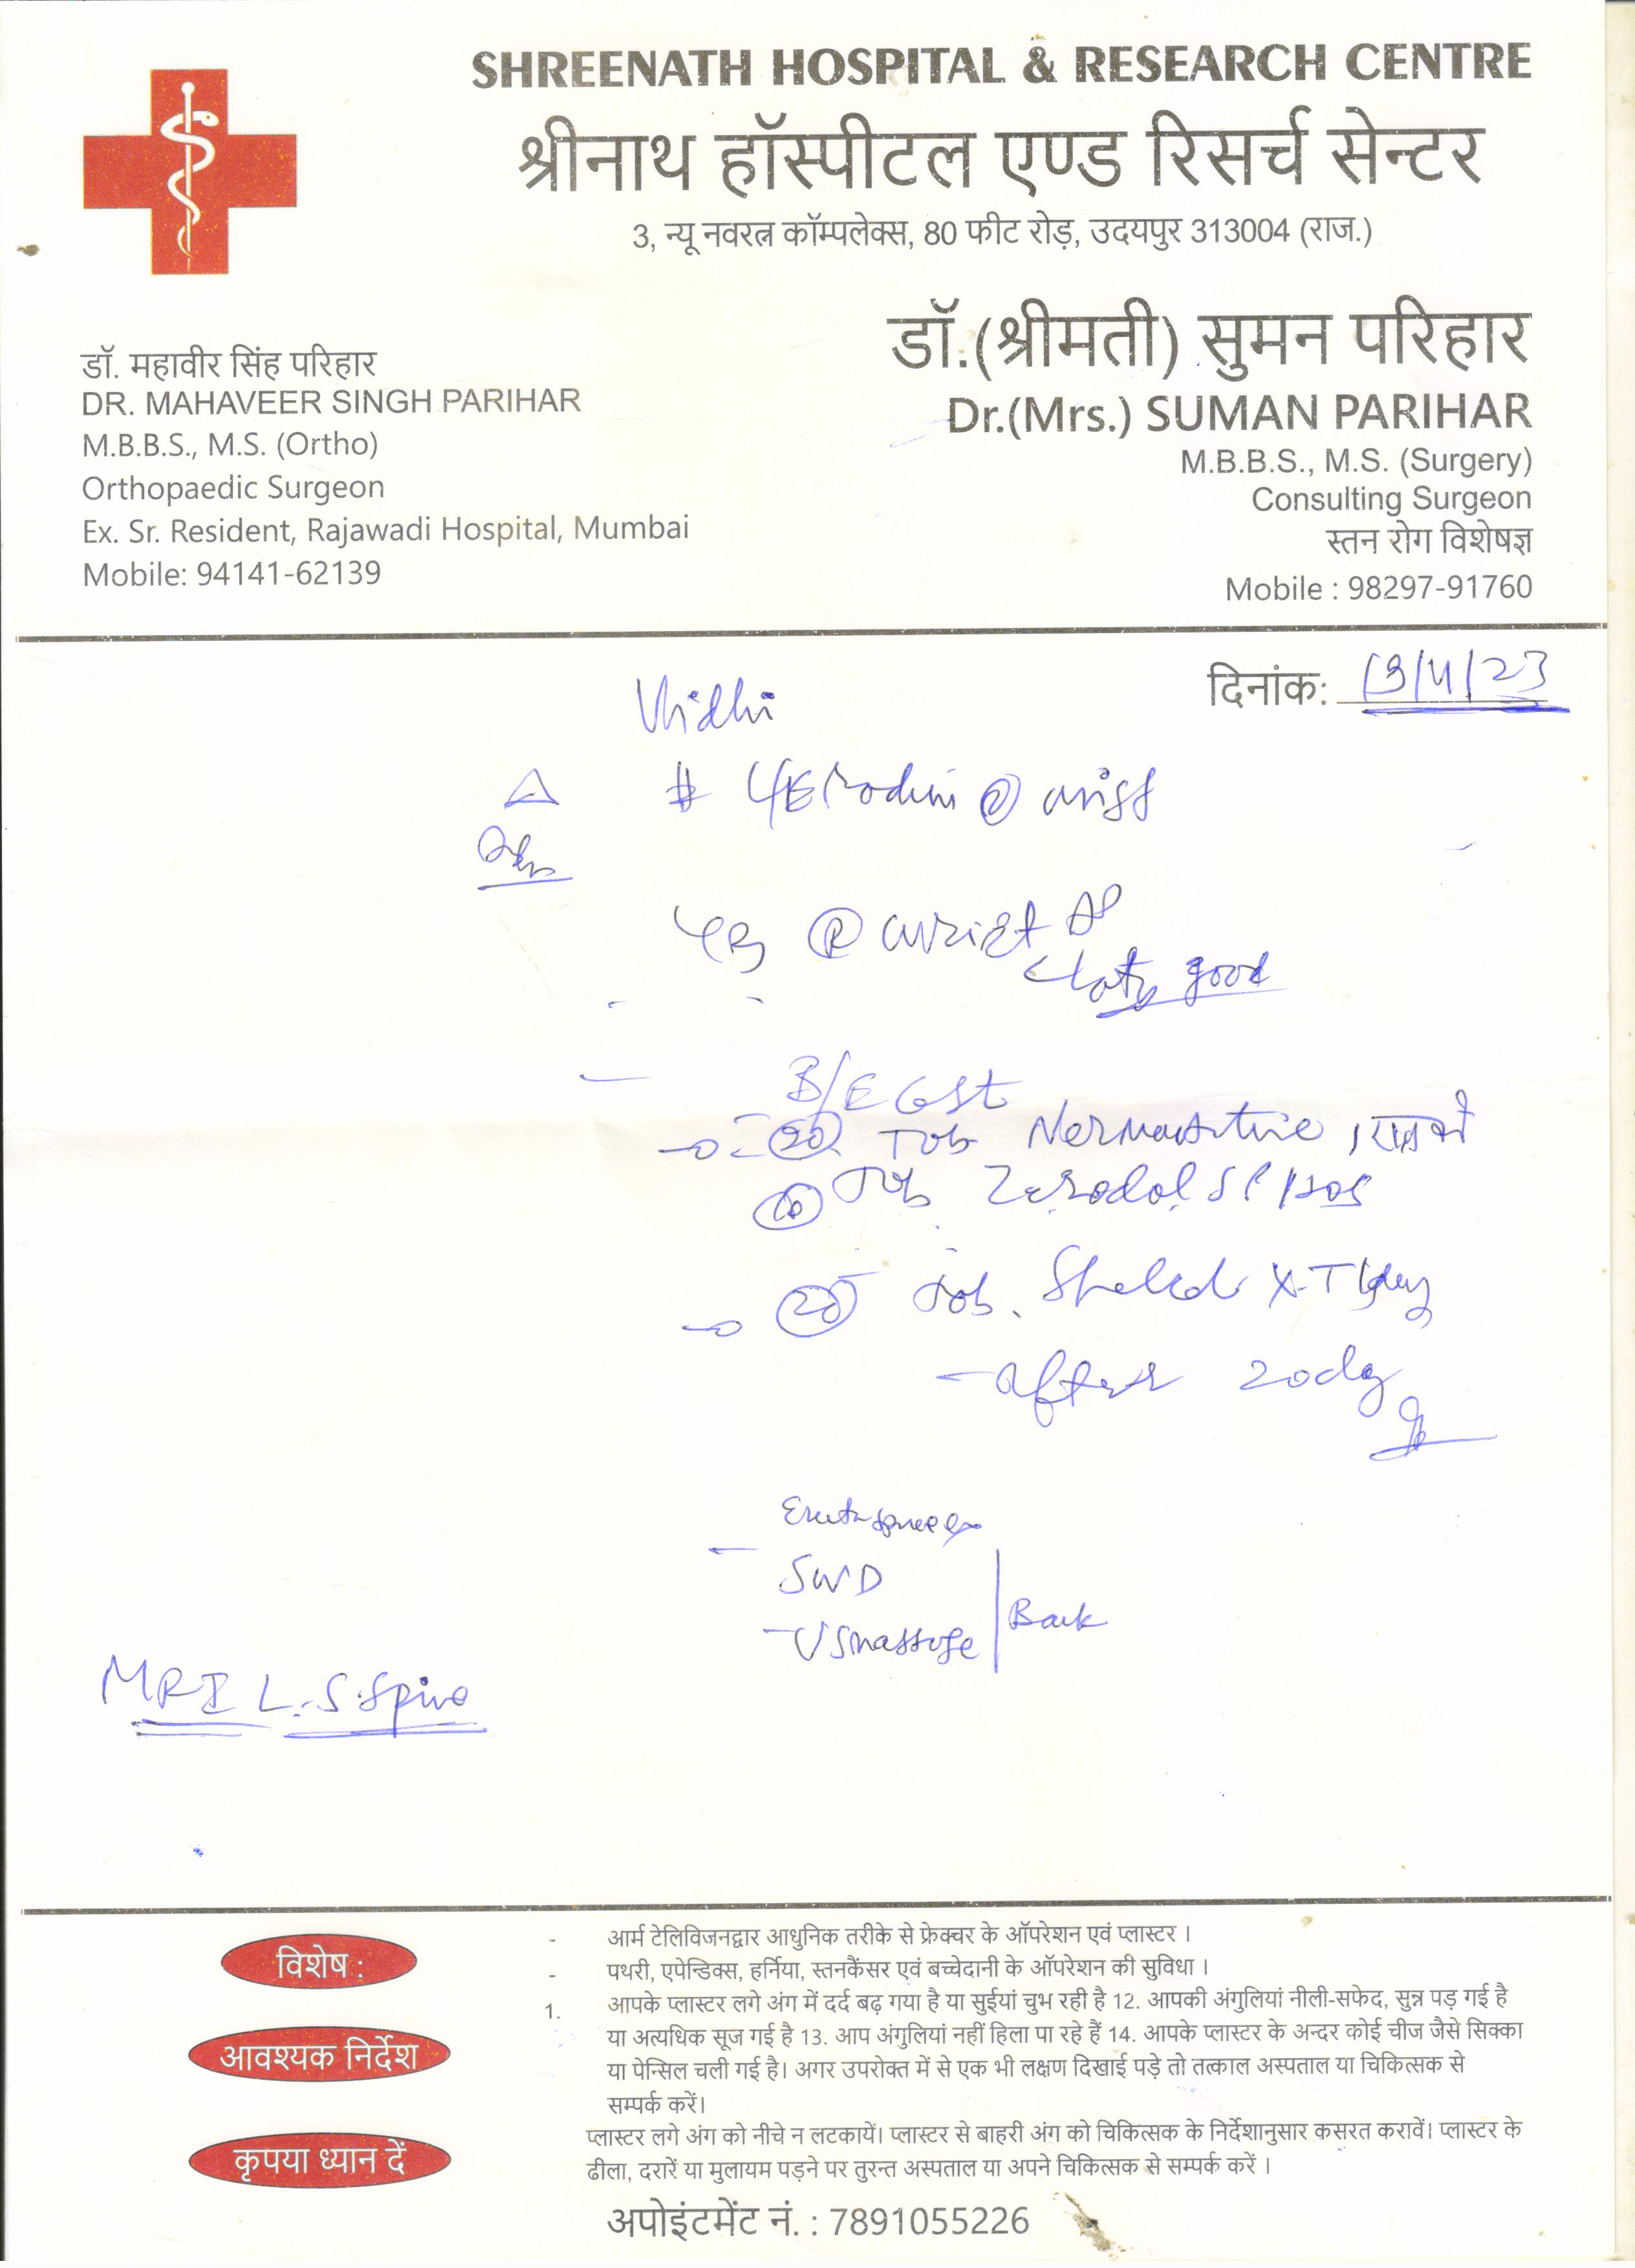 SHREENATH HOSPITAL & RESEARCH CENTRE
श्रीनाथ हॉस्पीटल एण्ड रिसर्च सेन्टर
3, न्यू नवरत्न कॉम्पलेक्स, 80 फीट रोड़, उदयपुर 313004 (राज.)
डॉ. महावीर सिंह परिहार
DR. MAHAVEER SINGH PARIHAR
M.B.B.S., M.S. (Ortho)
Orthopaedic Surgeon
Ex. Sr. Resident, Rajawadi Hospital, Mumbai
Mobile: 94141-62139
डॉ.(श्रीमती) सुमन परिहार
Dr.(Mrs.) SUMAN PARIHAR
M.B.B.S., M.S. (Surgery)
Consulting Surgeon
स्तन रोग विशेषज्ञ
Mobile : 98297-91760
दिनांक: 19/4/23
Vidhi
# L/E
R wrist AP
good
B/E
20 Tab
10 Tab Zerodol SP 1 BDS
20 Tab. Shelcal XT
- after 20 day
SWD
- US massage
Back
MRI L.S. Spine
विशेष :
- आर्म टेलिविजनद्वार आधुनिक तरीके से फ्रेक्चर के ऑपरेशन एवं प्लास्टर ।
- पथरी, एपेन्डिक्स, हर्निया, स्तनकैंसर एवं बच्चेदानी के ऑपरेशन की सुविधा ।
आवश्यक निर्देश
1. आपके प्लास्टर लगे अंग में दर्द बढ़ गया है या सुईयां चुभ रही है 12. आपकी अंगुलियां नीली-सफेद, सुन्न पड़ गई है
या अत्यधिक सूज गई है 13. आप अंगुलियां नहीं हिला पा रहे हैं 14. आपके प्लास्टर के अन्दर कोई चीज जैसे सिक्का
या पेन्सिल चली गई है। अगर उपरोक्त में से एक भी लक्षण दिखाई पड़े तो तत्काल अस्पताल या चिकित्सक से
सम्पर्क करें।
कृपया ध्यान दें
प्लास्टर लगे अंग को नीचे न लटकायें। प्लास्टर से बाहरी अंग को चिकित्सक के निर्देशानुसार कसरत करावें। प्लास्टर के
ढीला, दरारें या मुलायम पड़ने पर तुरन्त अस्पताल या अपने चिकित्सक से सम्पर्क करें ।
अपोइंटमेंट नं. : 7891055226